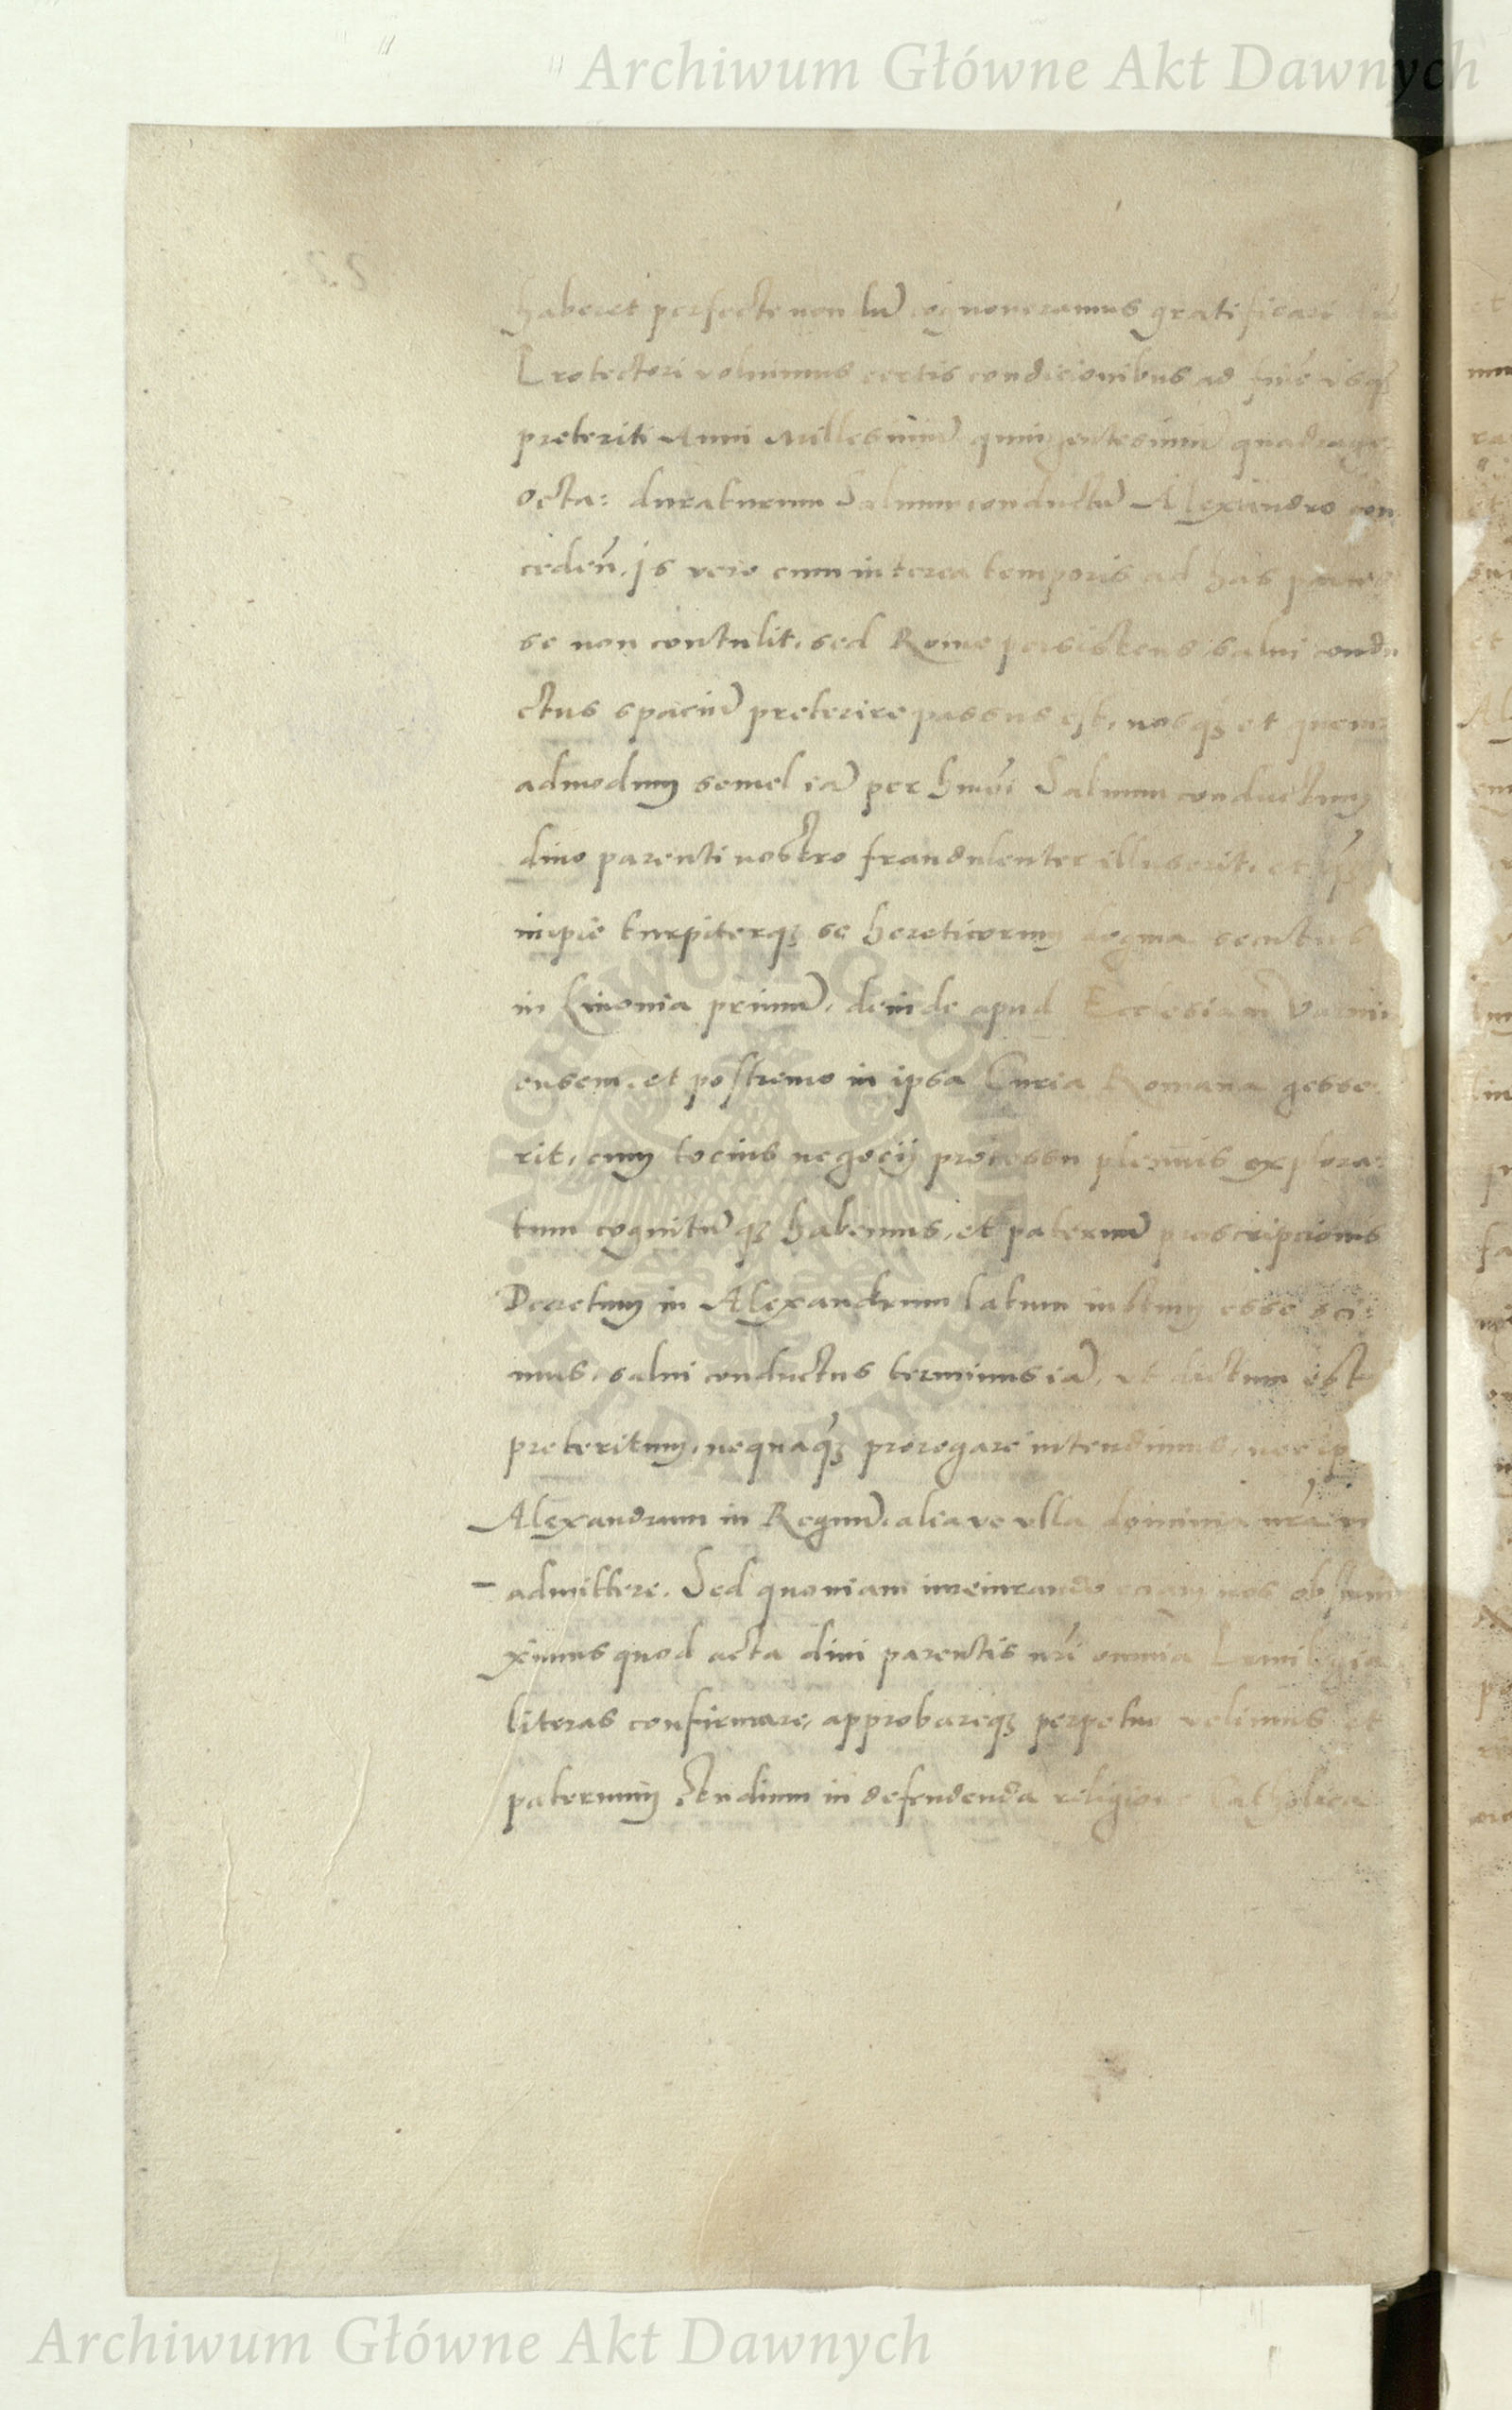 Archiwum Główne Akt Dawnych
haberet perfecte non tum cognoveramus gratificari
Protectori voluimus certis condicionibus ad finem usque
preteriti Anni Millesimi quingentesimi quadrage
octa: duraturum Salvumconductum Alexandro con
ceden. is vero cum interea temporis ad has partes
se non contulit, sed Rome persistens salvi condu
ctus spacium preterire passus est, nosque et quem
admodum semel iam per hmoi Salvum conductum
divo parenti nostro fraudulenter illuserit, et
impie turpiterque se hereticorum dogma secutus
in Livonia primum, deinde apud Ecclesiam Varmi
ensem, et postremo in ipsa Curia Romana gesse:
rit, cum tocius negocij processu plenius explora:
tum cognitumque habemus, et paternum proscripcionis
Decretum in Alexandrum latum iustum esse sci:
mus, salvi conductus terminus iam, ut dictum est
preteritum, nequaquam prorogare intendimus, nec ip
Alexandrum in Regnum, aliave ulla dominia nra
admittere. Sed quoniam iureiurando eciam nos obstrin
ximus quod acta divi parentis nri omnia
literas confirmare, approbareque perpetuo velimus et
paternum studium in defendenda religione Catholica
ARCHIWUM GŁÓWNE AKT DAWNYCH
Archiwum Główne Akt Dawnych